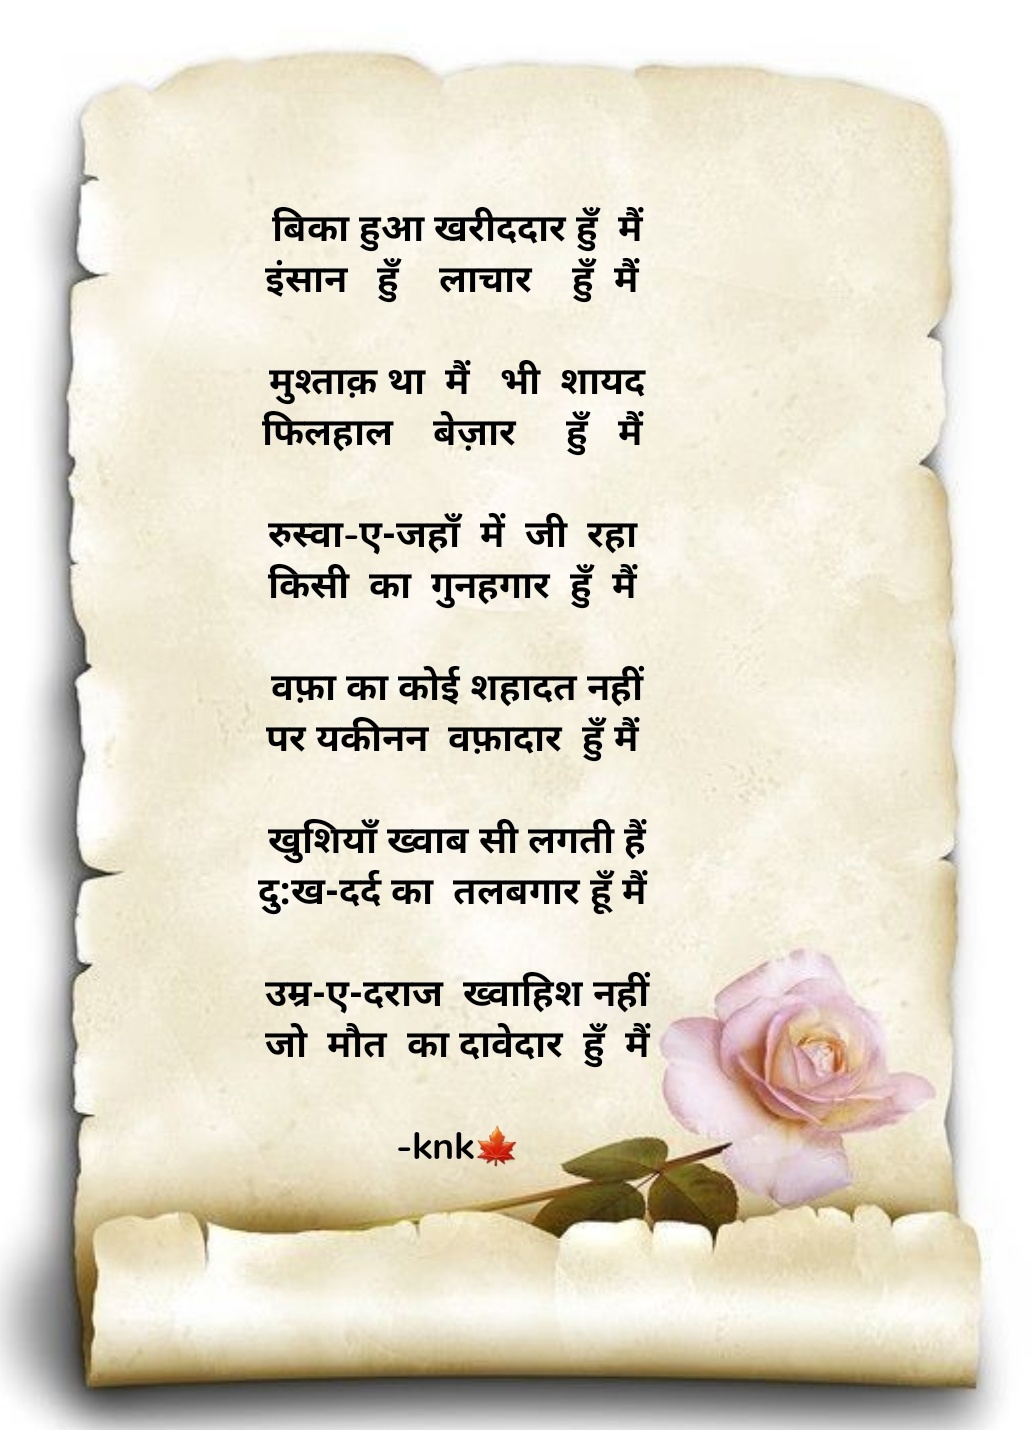 बिका हुआ खरीददार हुँ मैं
इंसान हुँ लाचार हुँ मैं
मुश्ताक़ था मैं भी शायद
फिलहाल बेज़ार हुँ मैं
रुस्वा-ए-जहाँ में जी रहा
किसी का गुनहगार हुँ मैं
वफ़ा का कोई शहादत नहीं
पर यकीनन वफ़ादार हुँ मैं
खुशियाँ ख्वाब सी लगती हैं
दु:ख-दर्द का तलबगार हूँ मैं
उम्र-ए-दराज ख्वाहिश नहीं
जो मौत का दावेदार हुँ मैं
-knk🍁